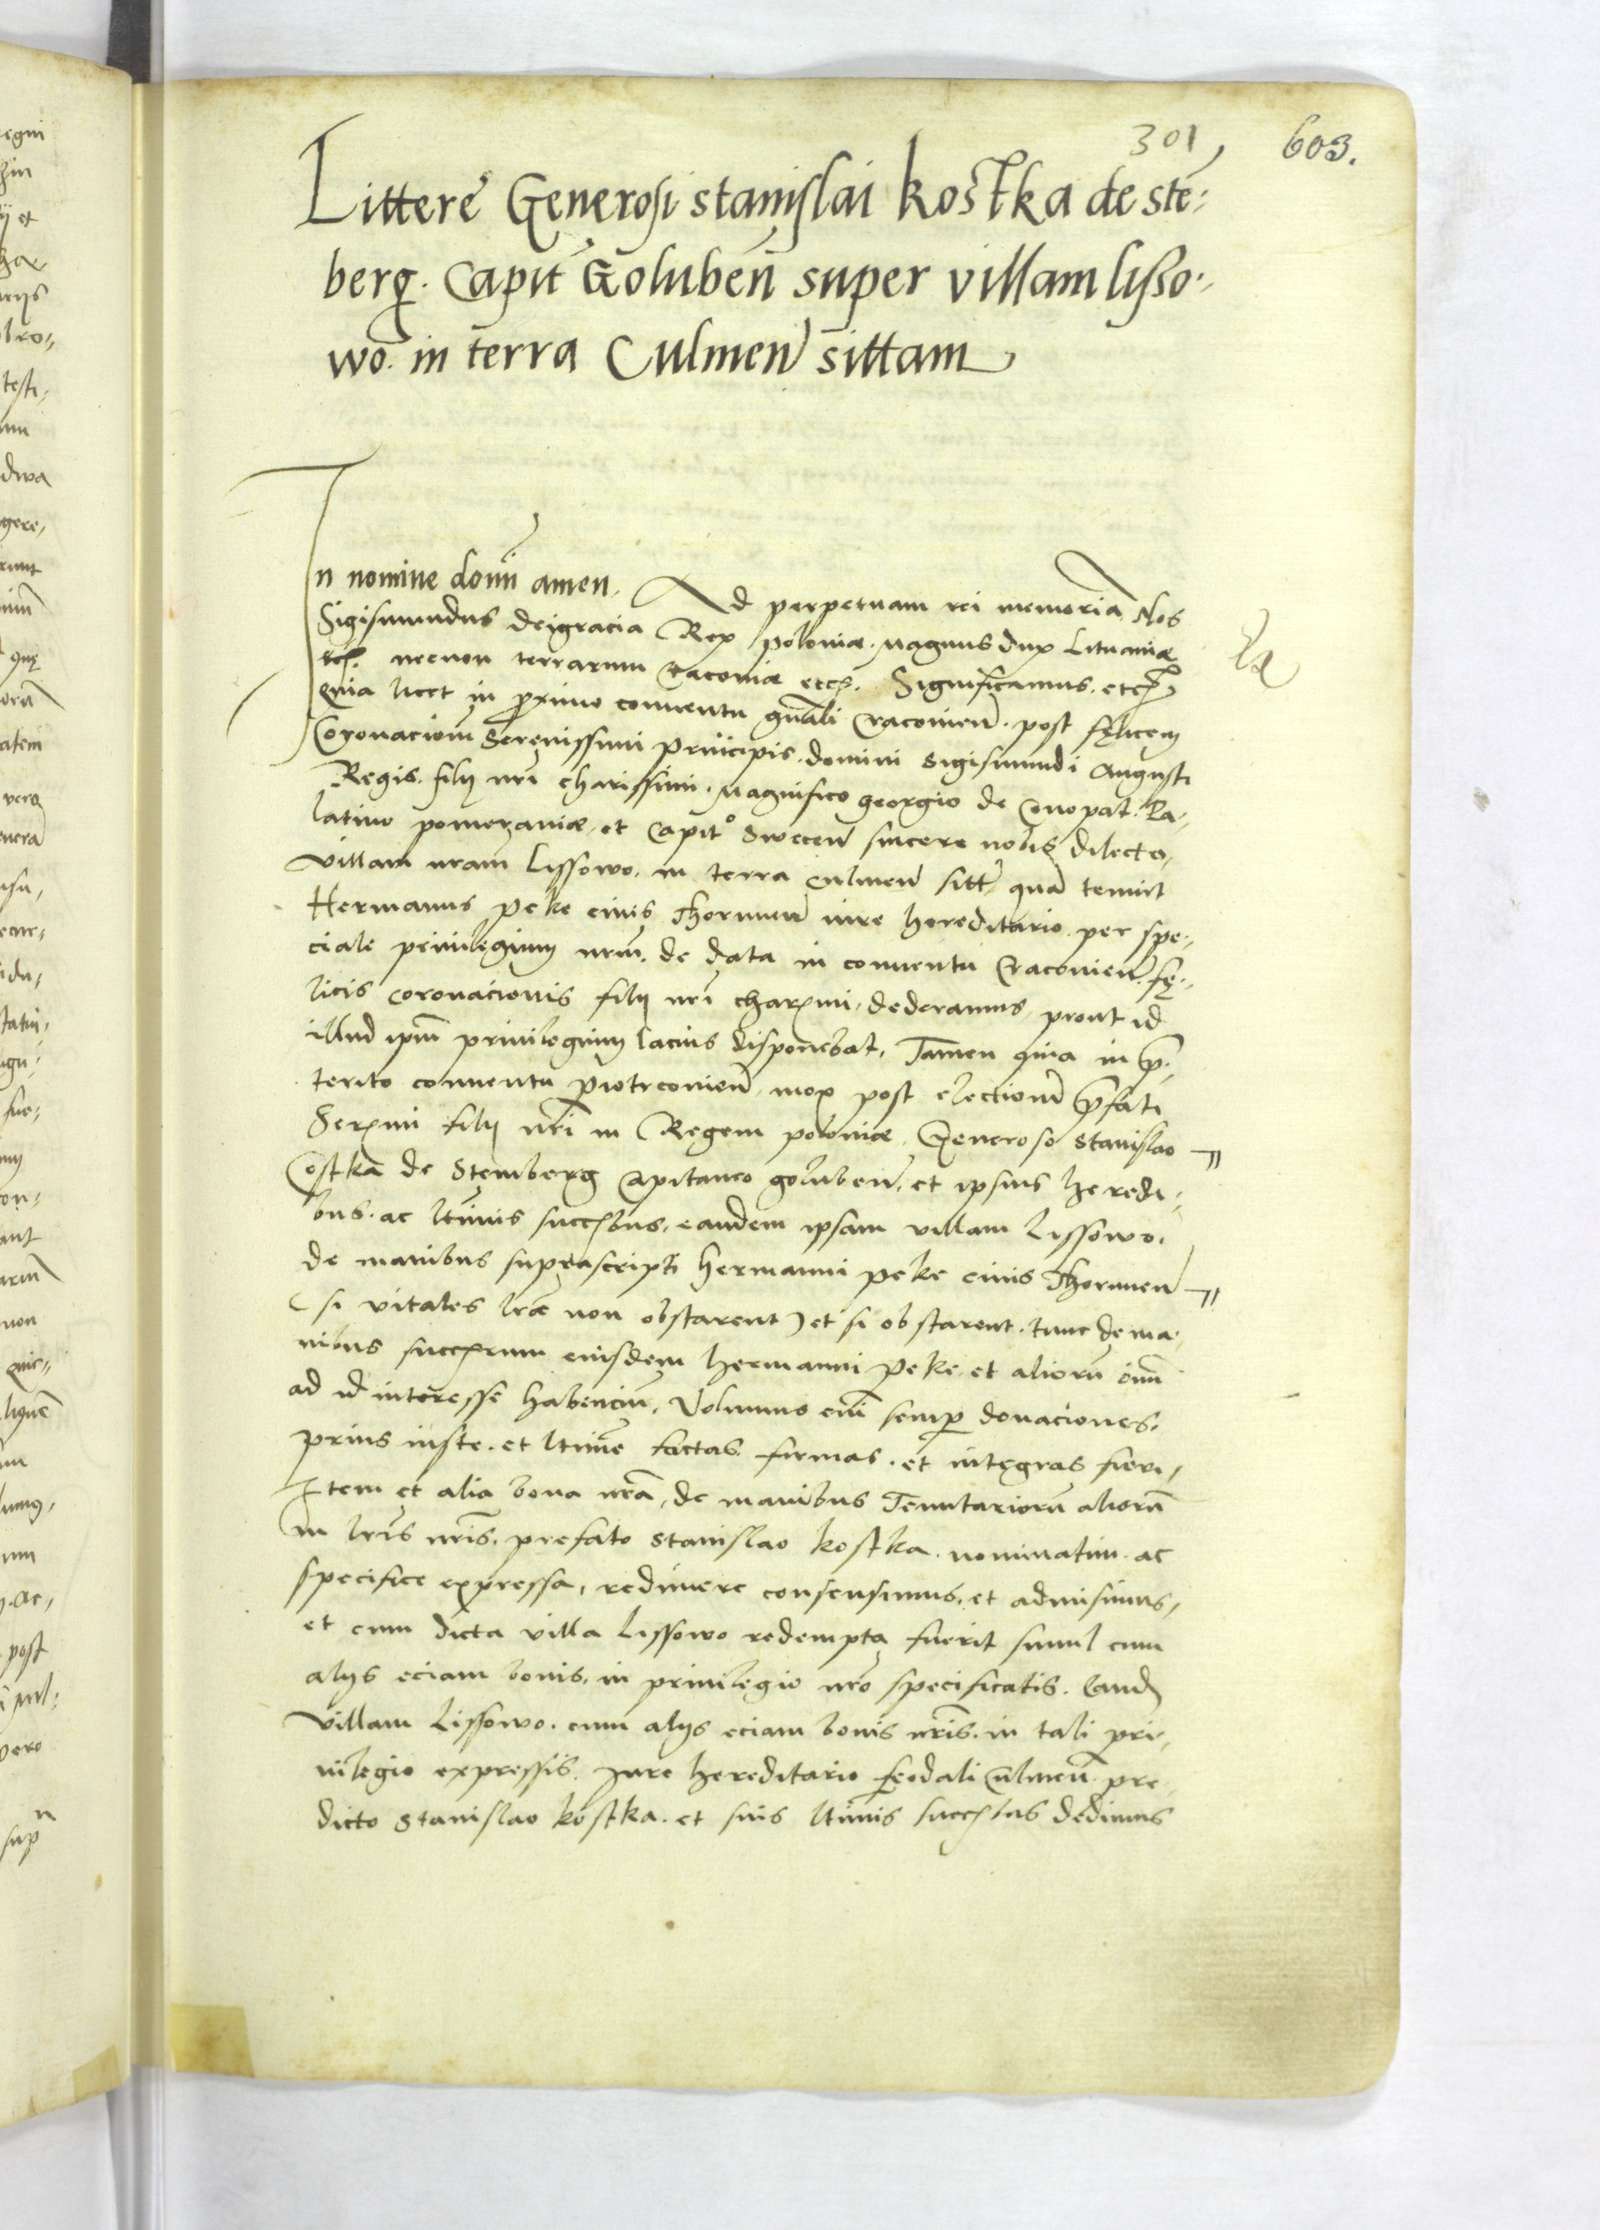 301 603.
Litterę Generosi stanislai kostka de stē-
berg. Capit̃ Goluben̄ super villam lisso-
wo. in terra Culmen̄ sittam
In nomine domi̅ amen. Ad perpetuam rei memoria̅ Nos
Sigismundus dei gracia Rex poloniæ. Magnus dux Lituaniæ
necnon terrarum Cracoviæ etc. Significamus. etc.
Quia licet in proximo conventu gn̄ali Cracovien̄. post fęlicem
Coronacionem Serenissimi principis. domini Sigismundi Augusti
Regis. filij nr̄i charissimi. Magnifico georgio de Conopat. Pa-
latino pomeraniæ. et Capit° Swecen̄ sincere nobis dilecto,
villam nram̄ Lissowo. in terra Culmen̄ sitt̄ quā tenuit
Hermanus peke civis Thorunen̄ iure hereditario. per spe-
ciale privilegium nrm̄. de data in conventu Cracovien̄. fę-
licis coronacionis filij nr̄i charmi, dederamus, prout id
illud ipm̄ privilegium lacius disponebat. Tamen quia in p̄-
terito conventu piotrcovien̄. mox post electionē p̄fati
Sermi filij nr̄i in Regem poloniæ. Generoso Stanislao
Costka de Stemberg Capitaneo goluben̄. et ipsius heredi-
bus. ac ltīmis succbus. eandem ipsam villam Lissowo.
de manibus suprascripti hermanni peke civis Thorunen̄
(si vitales lr̄æ non obstarent) et si obstarent. tunc de ma-
nibus succrum eiusdem hermanni peke. et aliorū om̄
ad id interesse habenciū. Volumus eni̅ semp̱ donaciones.
prius iuste. et ltīme factas firmas. et intęgras fieri,
Item et alia bona nr̄a, de manibus Tenutariorū aliorū
in lr̄is nr̄is. prefato Stanislao kostka. nominatim. ac
specifice expressa, redimere consensimus. et admisimus,
et cum dicta villa Lissowo redempta fuerit simul cum
alijs eciam bonis. in privilegio nr̄o specificatis. Eand
villam Lissowo. cum alijs eciam bonis nr̄is. in tali pri-
vilegio expressis. Jure hereditario feodali Culmen̄ pre-
dicto Stanislao kostka. et suis ltīmis succbus dedimus